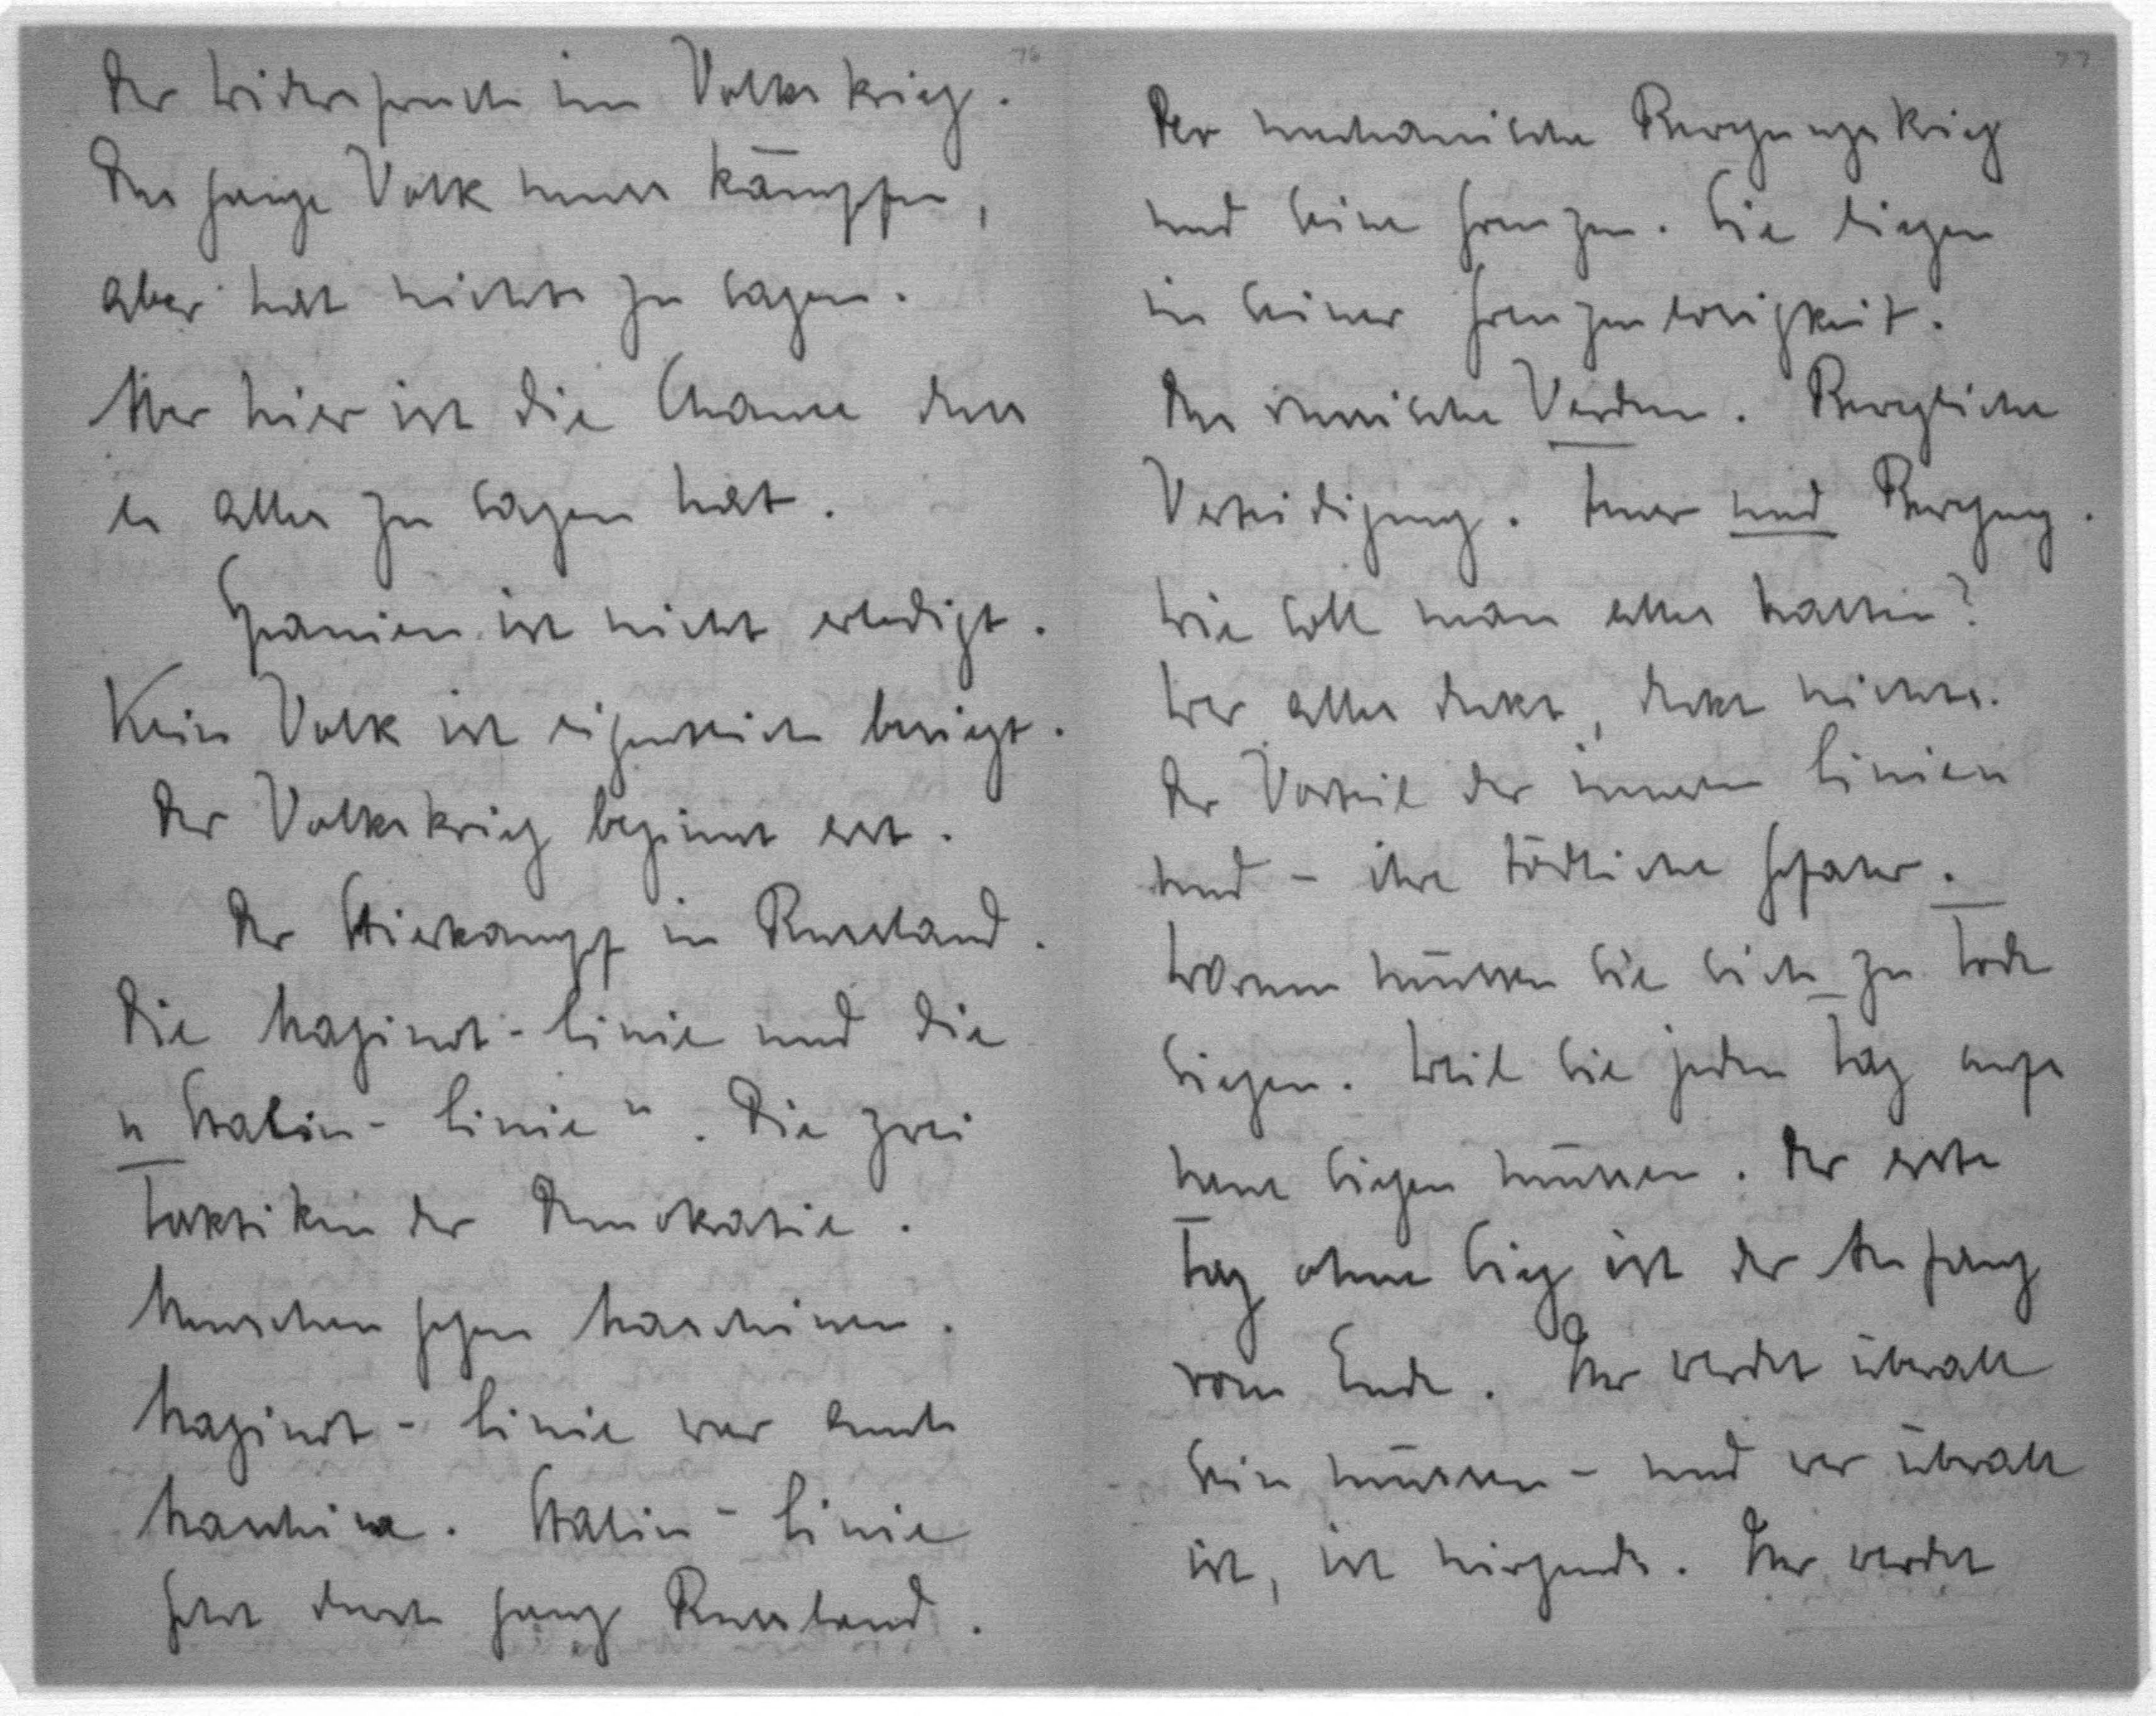 76
Der Widerspruch im Volkskrieg.
Das ganze Volk muss kämpfen,
aber hat nichts zu sagen.
Aber hier ist die Chance dass
es alles zu sagen hat.
Spanien ist nicht erledigt.
Kein Volk ist eigentlich besiegt.
Der Volkskrieg beginnt erst.
Der Stierkampf in Russland.
Die Maginot-Linie und die
"Stalin-Linie". Die zwei
Taktiken der Demokratie.
Menschen gegen Maschinen.
Maginot-Linie war auch
Maschine. Stalin-Linie
geht durch ganz Russland.
77
Der mechanische Bewegungskrieg
und seine Grenzen. Sie liegen
in seiner Grenzenlosigkeit.
Das russische Verdun. Bewegliche
Verteidigung. Feuer und Bewegung.
Wie soll man alles halten?
Wer alles deckt, deckt nichts.
Der Vorteil der inneren Linien
und - ihre tödliche Gefahr.
Warum müssen sie sich zu Tode
siegen. Weil sie jeden Tag aufs
neue siegen müssen. Der erste
Tag ohne Sieg ist der Anfang
vom Ende. Ihr werdet überall
sein müssen - und wer überall
ist, ist nirgends. Ihr werdet